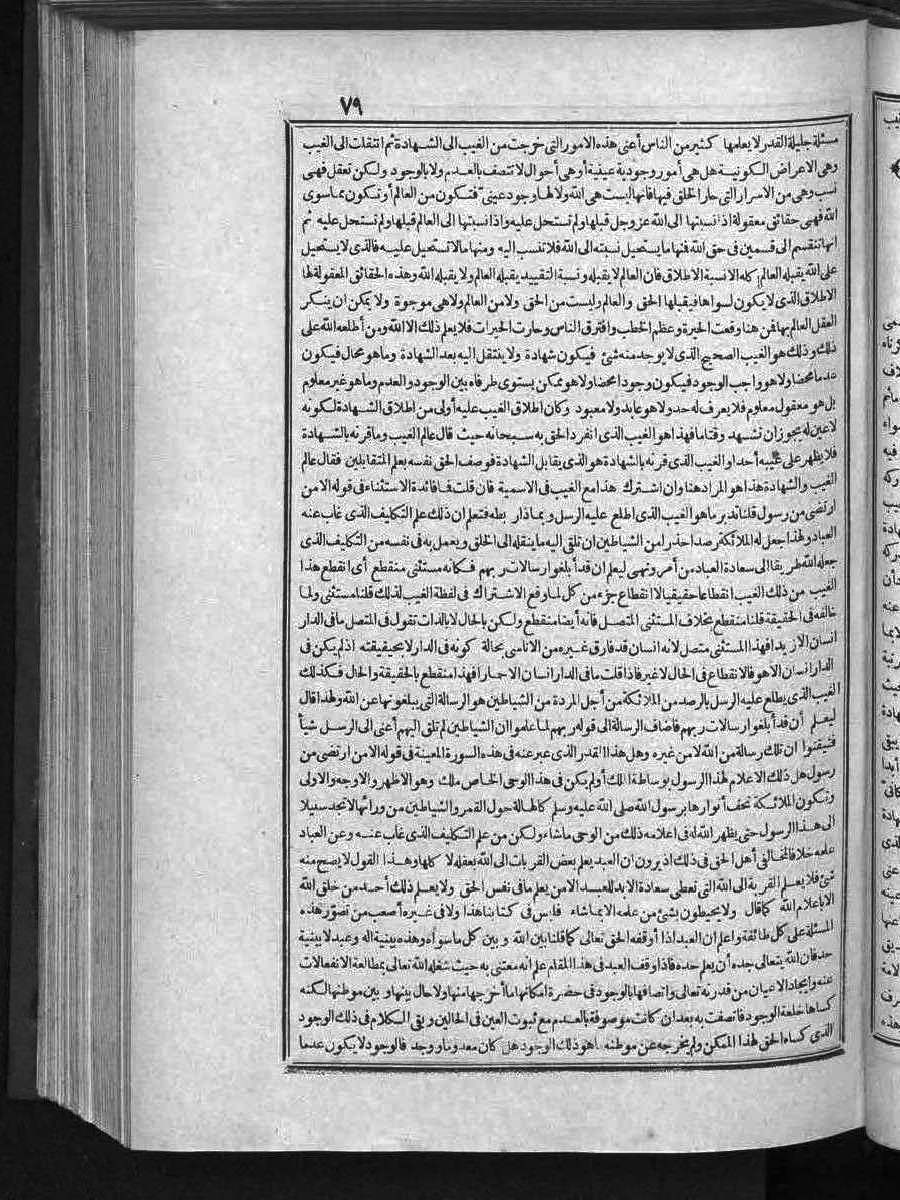 ٧٩
مسئلة جليلة القدر لا يعلمها كثير من الناس أعنى هذه الامور التى خرجت من الغيب الى الشهادة ثم انتقلت الى الغيب
وهى الاعراض الكونية هل هى أمور وجودية عينية أو هى أحوال لا تتصف بالعدم ولا بالوجود ولكن تعقل فهى
نسب وهى من الاسرار التى حار الخلق فيها فانها ليست هى الله ولا لها وجود عينىّ فتكون من العالم أو تكون مما سوى
الله فهى حقائق معقولة اذا نسبتها الى الله عز وجل قبلها ولم تستحل عليه واذا نسبتها الى العالم قبلها ولم تستحل عليه ثم
انها تنقسم الى قسمين فى حق الله فمنها ما يستحيل نسبته الى الله فلا تنسب اليه ومنها ما لا تستحيل عليه فالذى لا يستحيل
على الله يقبله العالم كله الا نسبة الاطلاق فان العالم لا يقبله ونسبة التقييد يقبله العالم ولا يقبله الله وهذه الحقائق المعقولة لها
الاطلاق الذى لا يكون لسواها فيقبلها الحق والعالم وليست من الحق ولا من العالم ولا هى موجوة ولا يمكن ان ينكر
العقل العالم بها فمن هنا وقعت الحيرة وعظم الخطب وافترق الناس وحارت الحيرات فلا يعلم ذلك الا الله ومن أطلعه الله على
ذلك وذلك هو الغيب الصحيح الذى لا يوجد منه شئ فيكون شهادة ولا ينتقل اليه بعد الشهادة وما هو محال فيكون
عدما محضا ولا هو واجب الوجود فيكون وجودا محضا ولا هو ممكن يستوى طرفاه بين الوجود والعدم وما هو غير معلوم
بل هو معقول معلوم فلا يعرف له حد ولا هو عابد ولا معبود وكان اطلاق الغيب عليه أولى من اطلاق الشهادة لكونه
لا عين له يجوز ان تشهد وقتا ما فهذا هو الغيب الذى انفرد الحق به سبحانه حيث قال عالم الغيب وما قرنه بالشهادة
فلا يظهر على غيبه أحدا والغيب الذى قرنه بالشهادة هو الذى يقابل الشهادة فوصف الحق نفسه بعلم المتقابلين فقال عالم
الغيب والشهادة هذا هو المراد هنا وان اشترك هذا مع الغيب فى الاسمية فان قلت فما فائدة الاستثناء فى قوله الا من
ارتضى من رسول قلنا تدبر ما هو الغيب الذى اطلع عليه الرسل وبماذا ربطه فتعلم ان ذلك علم التكليف الذى غاب عنه
العباد ولهذا جعل له الملائكة رصدا حذرا من الشياطين ان تلقى اليه ما ينقله الى الخلق ويعمل به فى نفسه من التكليف الذى
جعله الله طريقا الى سعادة العباد من أمر ونهى ليعلم ان قد أبلغوا رسالات ربهم فكانه مستثنى منقطع أى انقطع هذا
الغيب من ذلك الغيب انقطاعا حقيقيا لا انقطاع جزء من كل لما وقع الاشتراك فى لفظة الغيب لذلك قلنا مستثنى ولما
خالفه فى الحقيقة قلنا منقطع بخلاف المستثنى المتصل فانه أيضا منقطع ولكن بالحال لا بالذات تقول فى المتصل ما فى الدار
انسان الا زيدا فهذا المستثنى متصل لانه انسان قد فارق غيره من الاناسى بحالة كونه فى الدار لا بحقيقته اذ لم يكن فى
الدار انسان الا هو فالانقطاع فى الحال لا غير فاذا قلت ما فى الدار انسان الا حمارا فهذا منقطع بالحقيقة والحال فكذلك
الغيب الذى يطلع عليه الرسل بالرصد من الملائكة من أجل المردة من الشياطين هو الرسالة التى يبلغونها عن الله ولهذا قال
ليعلم أن قد أبلغوا رسالات ربهم فاضاف الرسالة الى قوله ربهم لما علموا ان الشياطين لم تلق اليهم أعنى الى الرسل شيأ
فتيقنوا ان تلك رسالة من الله لا من غيره وهل هذا القدر الذى عبر عنه فى هذه السورة المعينة فى قوله الا من ارتضى من
رسول هل ذلك الاعلام لهذا الرسول بوساطة الملك أو لم يكن فى هذا الوحى الخاص ملك وهو الاظهر والاوجه والاولى
وتكون الملائكة تحف أنوارها برسول الله صلى الله عليه وسلم كالهالة حول القمر والشياطين من ورائها لا تجد سبيلا
الى هذا الرسول حتى يظهر الله له فى اعلامه ذلك من الوحى ما شاء ولكن من علم التكليف الذى غاب عنه وعن العباد
علمه خلافا لمخالفى أهل الحق فى ذلك اذ يرون ان العبد يعلم بعض القربات الى الله بعقله لا كلها وهذا القول لا يصح منه
شئ فلا يعلم القربة الى الله التى تعطى سعادة الابد للعبد الا من يعلم ما فى نفس الحق ولا يعلم ذلك أحد من خلق الله
الا باعلام الله كما قال ولا يحيطون بشئ من علمه الا بما شاء فليس فى كتابنا هذا ولا فى غيره أصعب من تصوّر هذه
المسئلة على كل طائفة واعلم ان العبد اذا أوقفه الحق تعالى كما قلنا بين الله وبين كل ما سواه وهذه بينية اله وعبد لا بينية
حد فان الله يتعالى جده أن يعلم حده فاذا وقف العبد فى هذا المقام علم انه معتنى به حيث شغله الله تعالى بمطالعة الانفعالات
عنه وايجاد الاعيان من قدرته تعالى واتصافها بالوجود فى حضرة امكانها ما أخرجها منها ولا حال بينها وبين موطنها لكنه
كساها خلعة الوجود فاتصفت به بعد ان كانت موصوفة بالعدم مع ثبوت العين فى الحالين وبقى الكلام فى ذلك الوجود
الذى كساه الحق لهذا الممكن ولم يخرجه عن موطنه ما هو ذلك الوجود هل كان معدوما ووجد فالوجود لا يكون عدما